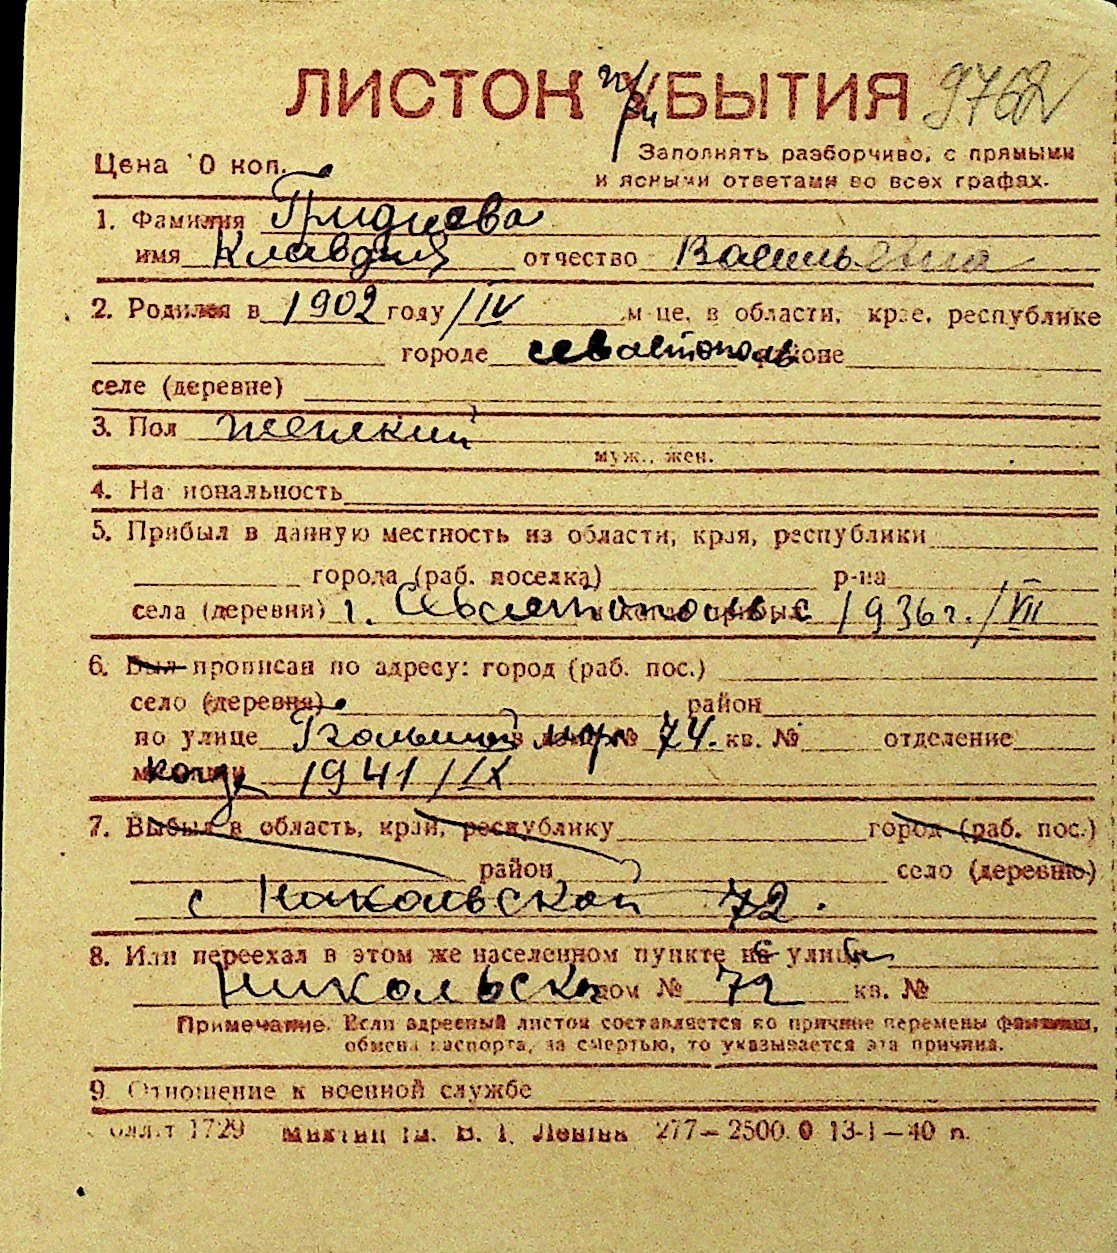 ЛИСТОК УБЫТИЯ 9762
Цена 10 коп.
Заполнять разборчиво, с прямыми
и ясными ответами во всех графах.
1. Фамилия Гриднева
имя Клавдия отчество Васильевна
2. Родился в 1902 году /IV м-це, в области, крае, республике
городе Севастополь районе
селе (деревне)
3. Пол женский
муж., жен.
4. Национальность
5. Прибыл в данную местность из области, края, республики
города (раб. поселка) р-на
села (деревни) г. Севастополь с 1936 г. /VII
6. Был прописан по адресу: город (раб. пос.)
село (деревня) район
по улице в доме № 74. кв. № отделение
когда 1941/IX
7. Выбыл в область, край, республику город (раб. пос.)
район село (деревню)
с Никольской 72.
8. Или переехал в этом же населенном пункте на улицу
Никольск дом № 72 кв. №
Примечание. Если адресный листок составляется по причине перемены фамилии,
обмена паспорта, за смертью, то указывается эта причина.
9. Отношение к военной службе
1729 им. В. И. Ленина 277—2500.0 13-I—40 п.